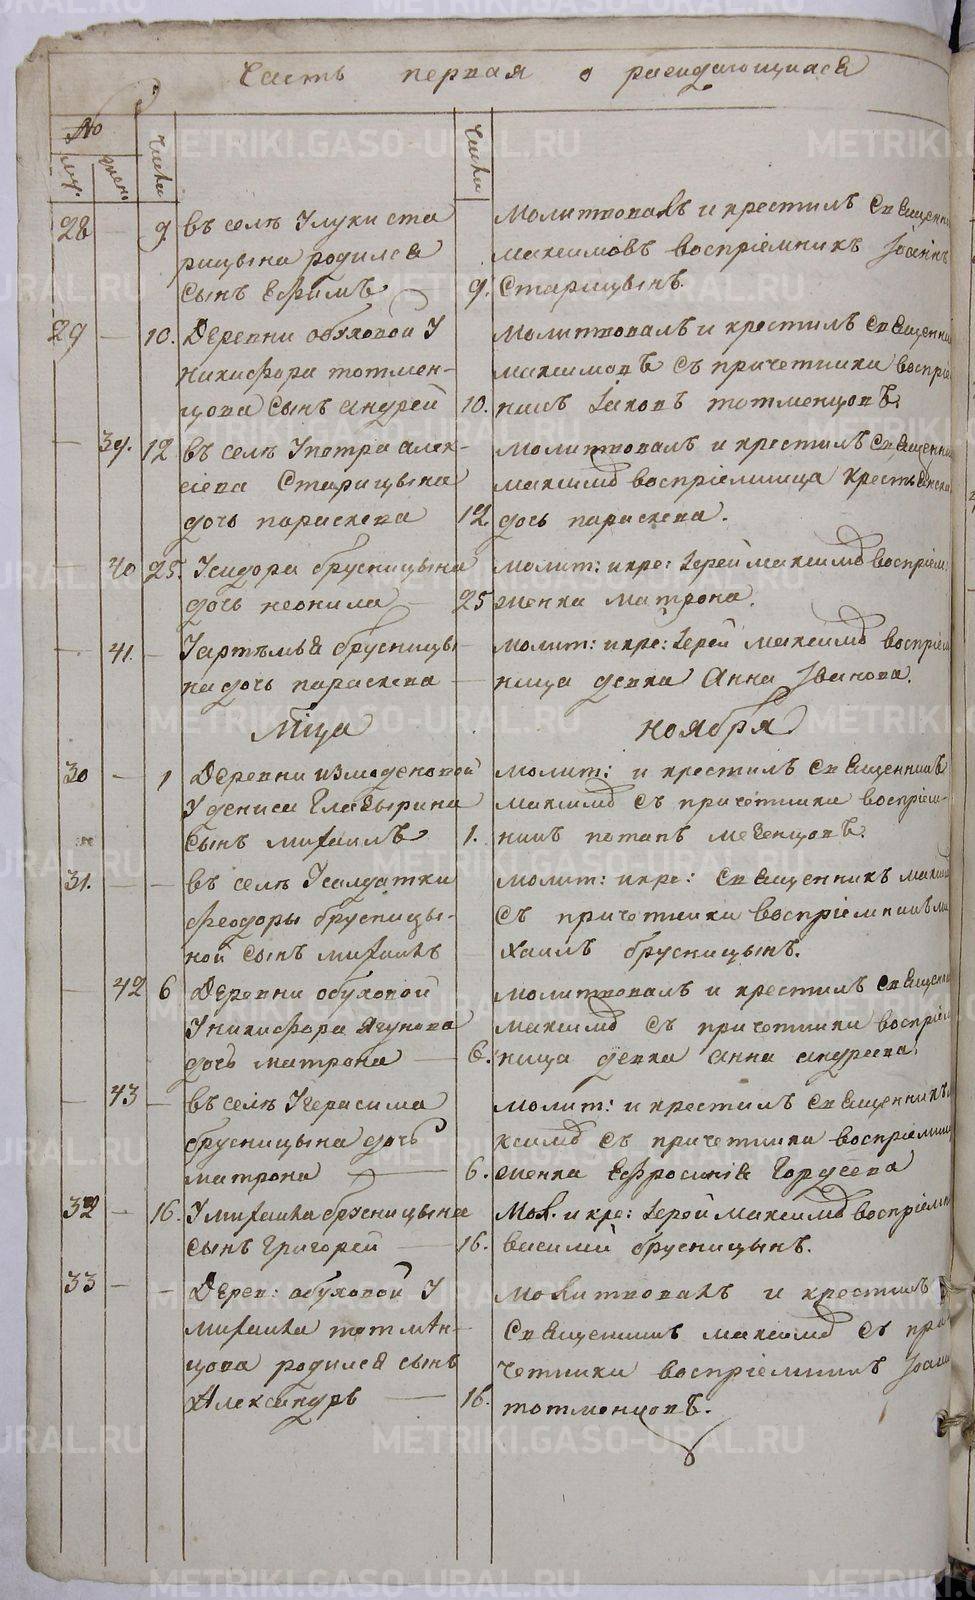 Часть первая о раждающихся
№ Числа Числа
му. жен.
28 — 9. въ селѣ У луки ста
рицына родился
сынъ Ефимъ 9.
Молитвовалъ и крестилъ священни
максимовъ воспріемникъ Іоаннъ
Старицынъ.
29 — 10. Деревни обуховой У
никифора тотмен-
цова сынъ андрей 10.
молитвовалъ и крестилъ священни
максимовъ съ причетники воспріе
никъ Іаковъ тотменцовъ.
— 39. 12 въ селѣ У петра алек-
сіева Старицына
дочь параскева 12.
молитвовалъ и крестилъ священни
максимъ воспріемница крестьянска
дочь параскева.
— 40 25. У сидора брусницына
дочь неонила — 25
молит: и кре: Іерей максимъ воспріем:
женка матрона.
— 41. — У артемья брусницы
на дочь параскева —
молит: и кре: Іерей максимъ воспріем
ница девка Анна Іванова.
Мца ноября
30 — 1 Деревни измоденовой
У дениса Глазырина
сынъ михаилъ 1.
молит: и крестилъ священникъ
максимъ съ причетники воспріем-
никъ потапъ мезенцовъ.
31. — — въ селѣ У салдатки
феодоры брусницы-
ной сынъ михаилъ
молит: и кре: священникъ макси
съ причетники воспріемникъ ми
хаилъ брусницынъ.
— 42 6 Деревни обуховой
У никифора Ягунова
дочь матрона — 6.
молитвовалъ и крестилъ священни
максимъ съ причетники воспріем
ница девка анна андреева.
— 43 — въ селѣ У герасима
брусницына дочь
матрона — 6.
молит: и крестилъ священникъ ма
ксимъ съ причетники воспріемни
женка Ефросинія Гордеева
32 — 16. У михаила брусницына
сынъ Григорей — 16.
Мол. и кре: Іерей максимъ воспріемни
василій брусницынъ.
33 — — Дерев: обуховой У
михаила тотмен-
цова родился сынъ
Александръ — 16.
молитвовалъ и крестилъ
священникъ максимъ съ при
четники воспріемникъ Іоанн
тотменцовъ.
METRIKI.GASO-URAL.RU